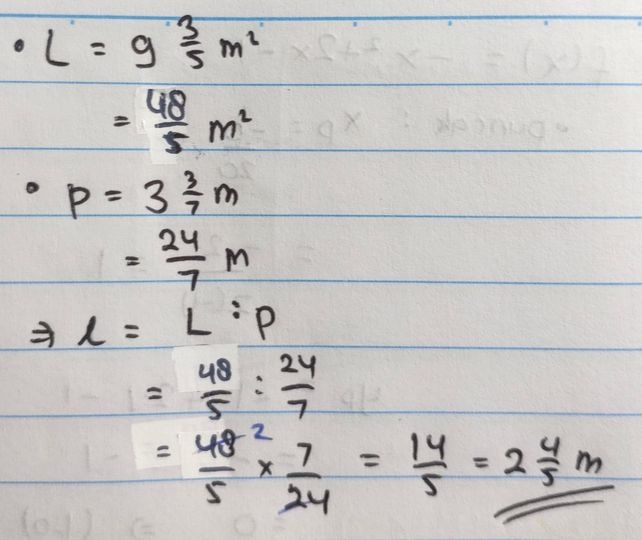 • L = 9 3/5 m²
= 48/5 m²
• p = 3 3/7 m
= 24/7 m
⇒ l = L : p
= 48/5 : 24/7
= 48/5 2 × 7/24 = 14/5 = 2 4/5 m